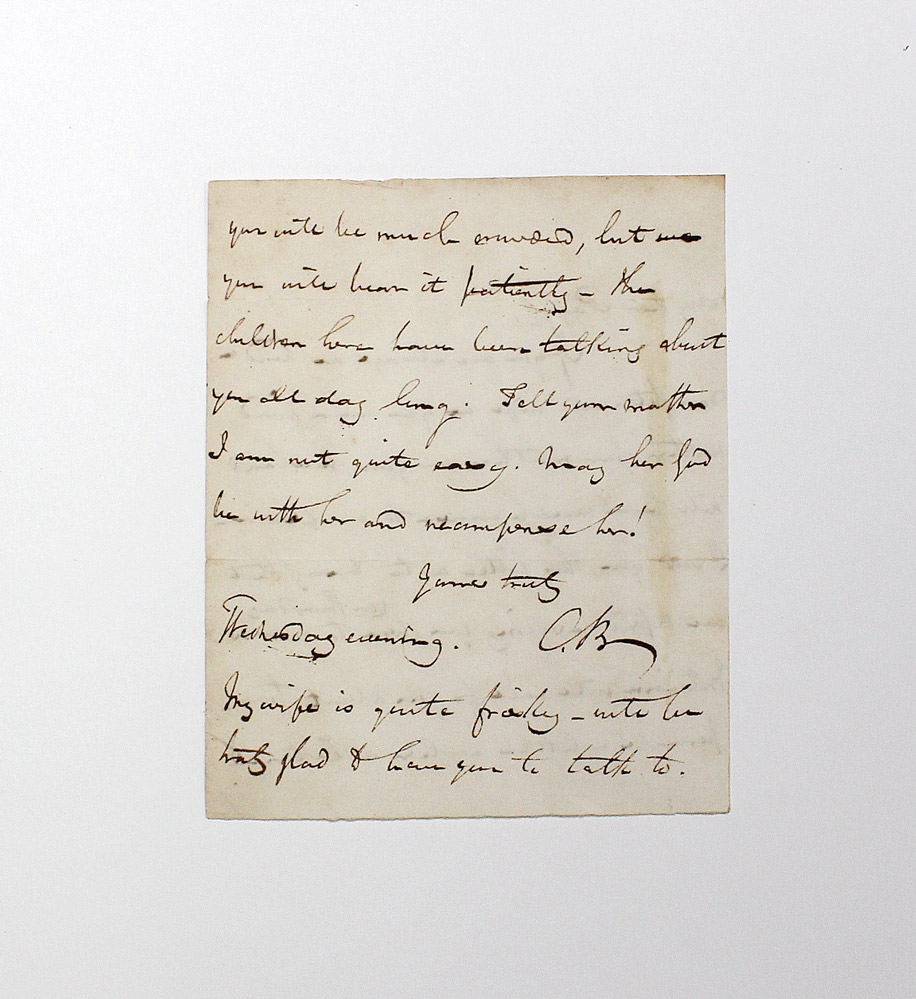 you will be much crowded, but we
you will bear it patiently – The
children here have been talking about
you all day long. Tell your mother
I am not quite easy. May her God
be with her and recompense her!
Yours truly
Wednesday evening. C.B
My wife is quite frisky – will be
truly glad to have you to talk to.